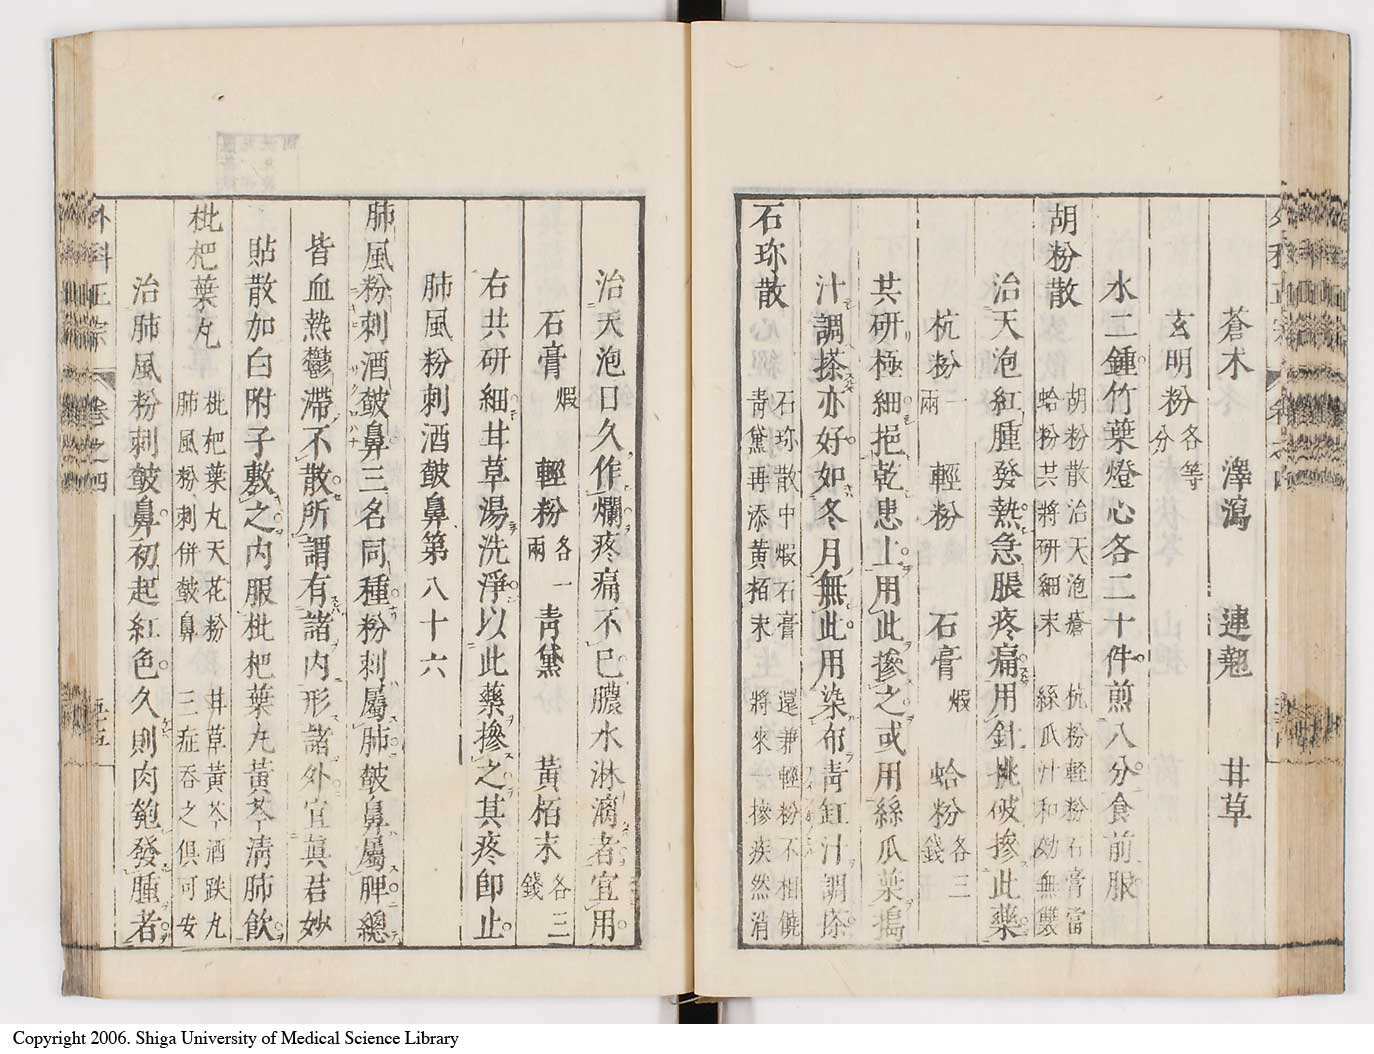 蒼朮　澤瀉　連翹　甘草
玄明粉各等分
水二鍾竹葉燈心各二十件煎八分食前服
胡粉散
胡粉散治天泡瘡　杭粉軽粉石膏當
蛤粉共將研細末　絲瓜汁和効無雙
治天泡紅腫發熱急脹疼痛用針挑破摻此藥
杭粉一兩　輕粉　石膏煅　蛤粉各三錢
共研極細挹乾患上用此摻之或用絲瓜葉搗
汁調搽亦好如冬月無此用染布青缸汁調搽
石珎散
石珎散中煅石膏　還兼輕粉不相饒
青黛再添黄栢末　將來摻疾然消
治天泡日久作爛疼痛不已膿水淋漓者宜用
石膏煅　輕粉各一兩　青黛　黃栢末各三錢
右共研細甘草湯洗淨以此藥摻之其疼即止
肺風粉刺酒皶鼻第八十六
肺風粉刺酒皶鼻三名同種粉刺屬肺皶鼻屬脾總
皆血熱鬱滯不散所謂有諸内形諸外宜真君妙
貼散加白附子敷之内服枇杷葉丸黃芩清肺飲
枇杷葉丸
枇杷葉丸天花粉　甘草黃芩酒跌丸
肺風粉刺併皶鼻　三症吞之俱可安
治肺風粉刺皶鼻初起紅色久則肉匏發腫者
外科正宗　卷之四　五十五
Copyright 2006. Shiga University of Medical Science Library